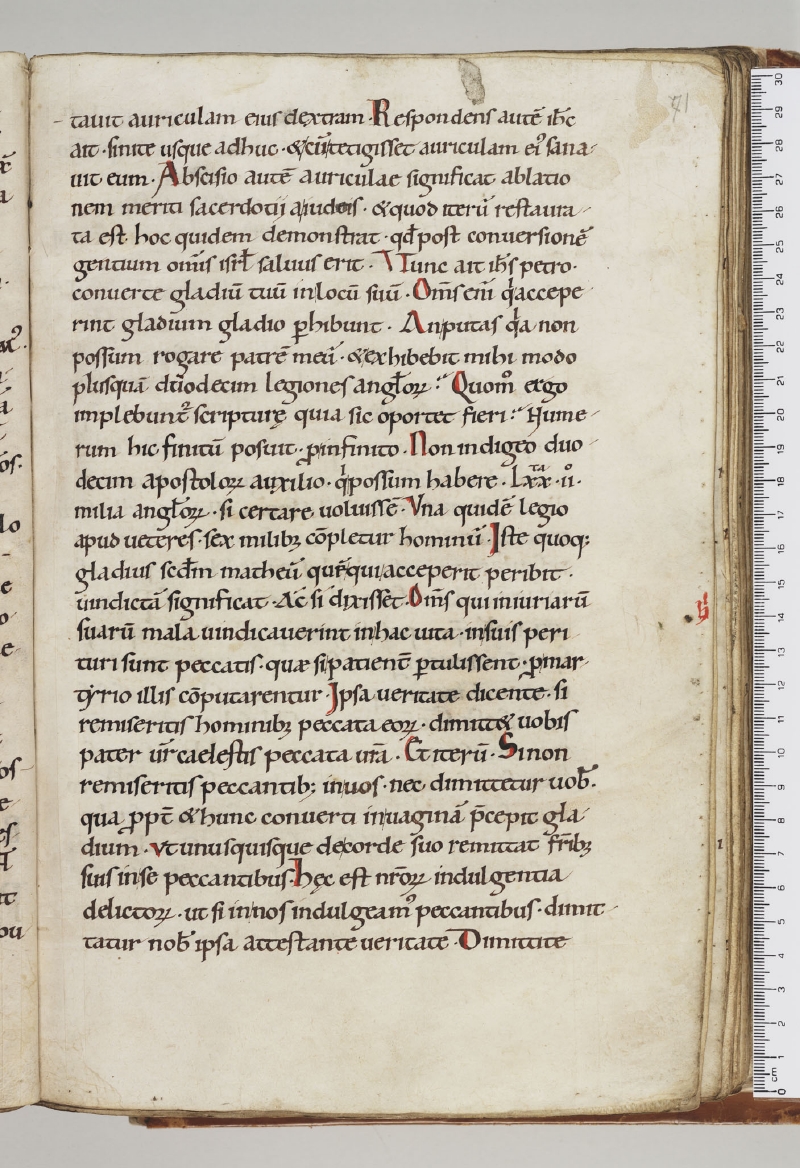 71
tauit auriculam eius dextram. Respondens autē ihc̄
ait. sinite usque adhuc. &cū tetigisset auriculam ei᾽ sana-
uit eum. Abscisio autē auriculae significat ablatio
nem meriti sacerdotii a iudeis. &quod iterū restaura-
ta est hoc quidem demonstrat. qd̄ post conversionē
gentium om̄is isrl̄ saluus erit. Tunc ait ihs̄ petro.
converte gladiū tuū in locū suū. Om̄s eni qͥ accepe-
rint gladium gladio ꝑhibunt. An putas qͥa non
possum rogare patrē meū. &exhibebit mihi modo
plusquā duodecim legiones angl̄oꝝ. Quom̊ ergo
implebunt᾽ scripturę quia sic oportet fieri. Nume-
rum hic finitū posuit. ꝓ infinito. Non indigeo duo-
decim apostoloꝝ auxilio. qͥ possum habere. Lxx.ͭͣ ii.ͦ
milia angl̄oꝝ. si certare uoluissē. Vna quidē legio
apud ueteres. sex milibꝫ cōpletur hominū. Iste quoqꝫ
gladius scd̄m matheū qui acceperit peribit.
uindictā significat. Ac si dixisset. Om̄s qui iniuriarū
suarū mala uindicauerint in hac uita. in suis peri
turi sunt peccatis. quæ si patient᾽ ꝑtulissent. ꝓ mar-
tyrio illis cōputarentur. Ipsa ueritate dicente. si
remiseritis hominibꝫ peccata eoꝝ. dimitt& uobis
pater ūr caelestis peccata ur̄a. Et iterū. Si non
remiseritis peccantibꝫ in uos. nec dimittetur uob̄.
qua ꝓpt̄ & hunc converti in uaginā p̄cepit gla-
dium. ut unusquisque de corde suo remittat fr̄ibꝫ
suis in se peccantibus. hęc est nr̄oꝝ indulgentia
delictoꝝ. ut si in nos indulgeam᾽ peccantibus. dimit-
tatur nob̄ ipsa attestante ueritate. Dimittite